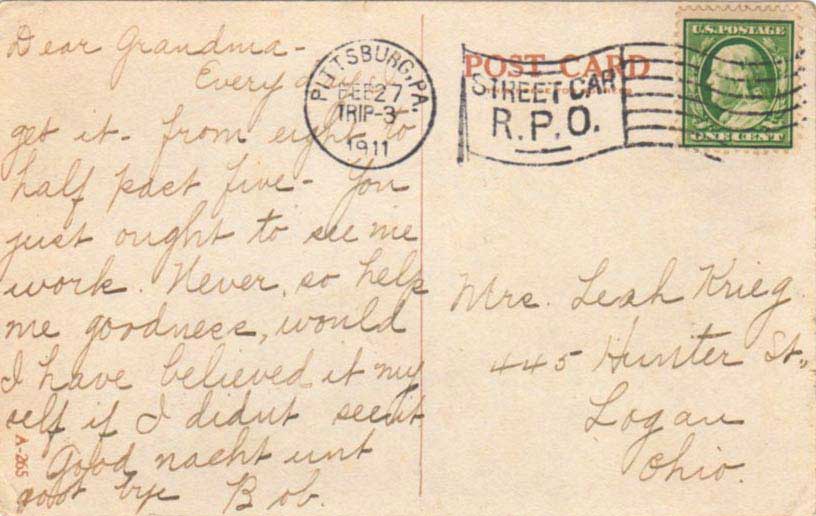 Dear Grandma -
Every
get it - from eight to
half past five - You
just ought to see me
work. Never, so help
me goodness, would
I have believed it my
self if I didnt see it
Good nacht unt
good bye Bob.
A-265
PITTSBURG, PA.
FEB 27
TRIP-3
1911
POST CARD
STREET CAR
R.P.O.
U.S. POSTAGE
ONE CENT
Mrs. Leah Krieg
445 Hunter St.,
Logan
Ohio.